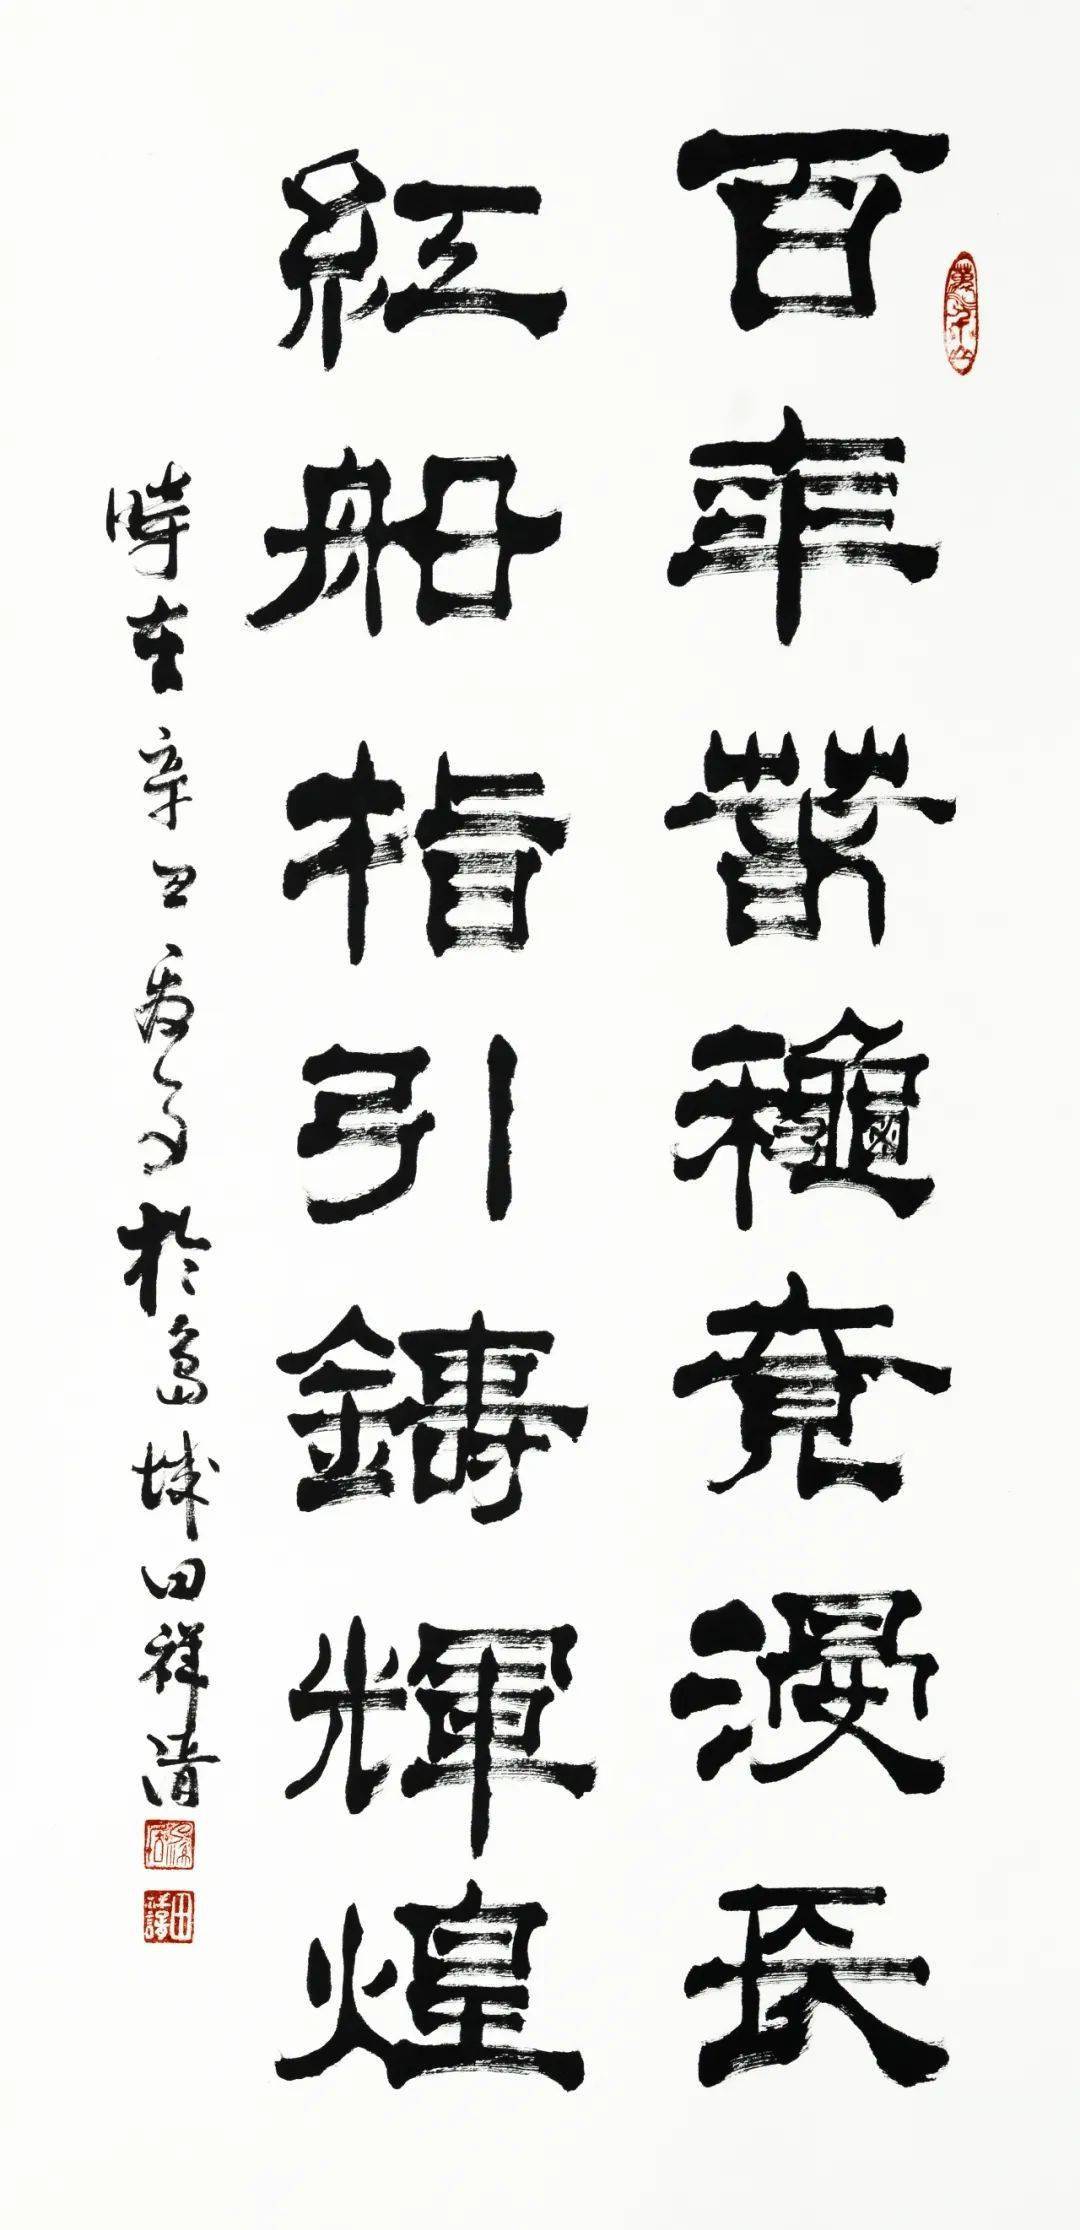 百年萅穐竟漫長
紅船指引鑄輝煌
時在辛丑夏月於島城田祥清